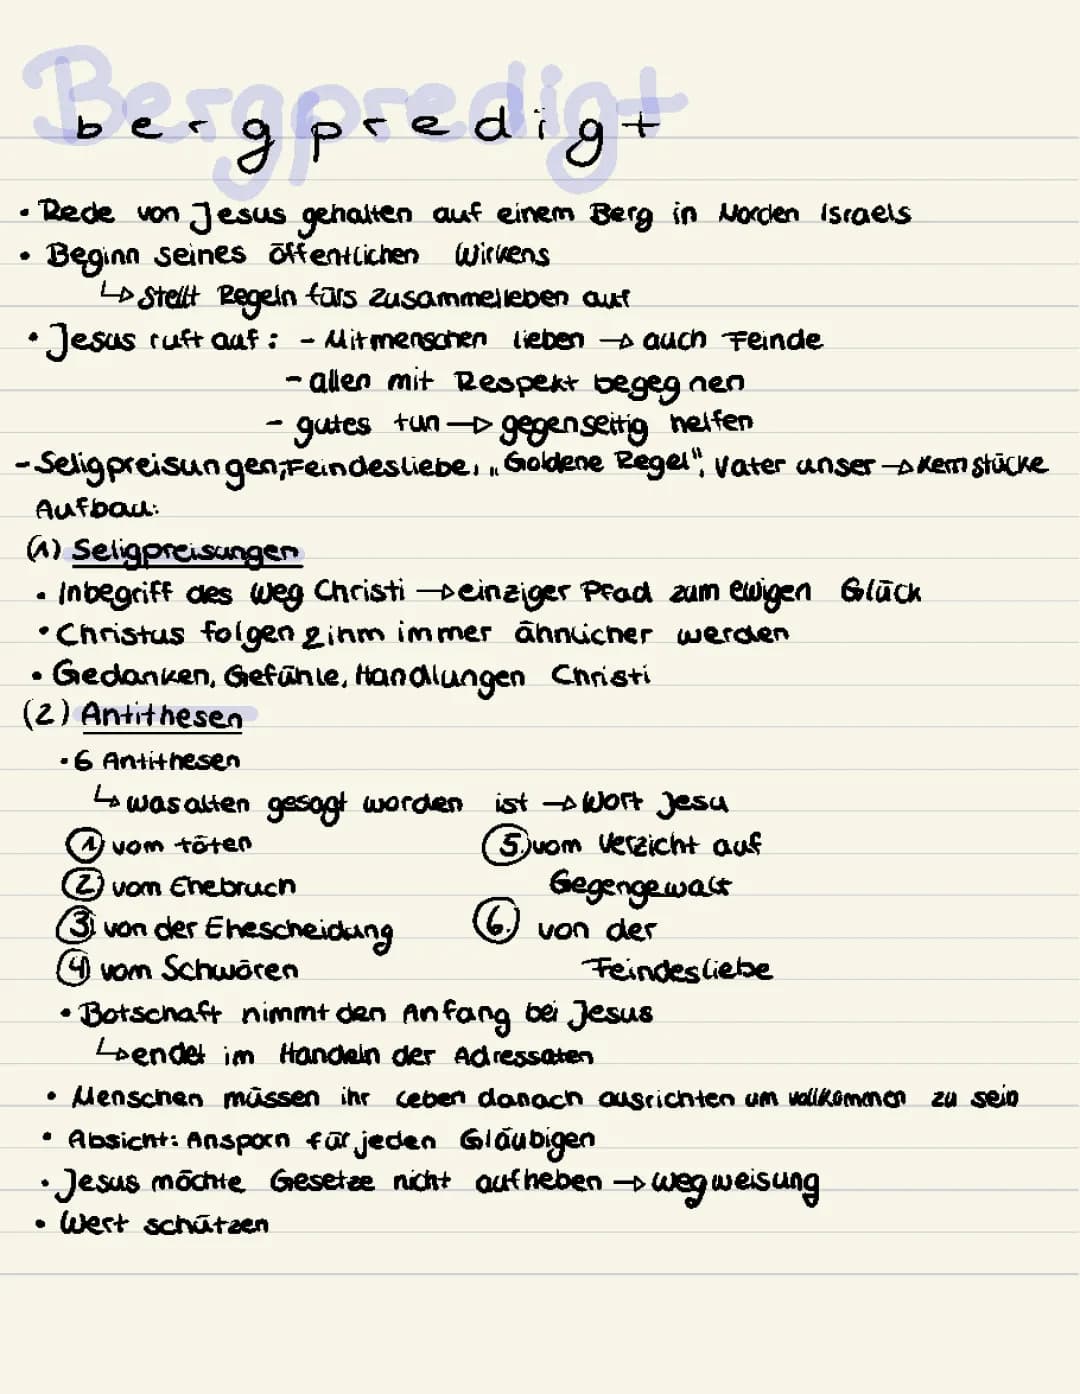 Bergpredigt
bergpredigt
• Rede von Jesus gehalten auf einem Berg in Norden Israels
• Beginn seines öffentlichen Wirkens
↳ stellt Regeln fürs zusammelleben auf
• Jesus ruft auf: - Mitmenschen lieben → auch Feinde
- allen mit Respekt begegnen
- gutes tun → gegenseitig helfen
- Seligpreisungen, Feindesliebe, „Goldene Regel", Vater unser → Kernstücke
Aufbau:
(1) Seligpreisungen
• Inbegriff des Weg Christi → einziger Pfad zum ewigen Glück
• Christus folgen & ihm immer ähnlicher werden
• Gedanken, Gefühle, Handlungen Christi
(2) Antithesen
• 6 Antithesen
↳ was alten gesagt worden ist → Wort Jesu
1 vom töten 5. vom Verzicht auf
2 vom Ehebruch Gegengewalt
3. von der Ehescheidung 6. von der
4 vom Schwören Feindesliebe
• Botschaft nimmt den Anfang bei Jesus
↳ endet im Handeln der Adressaten
• Menschen müssen ihr Leben danach ausrichten um vollkommen zu sein
• Absicht: Ansporn für jeden Gläubigen
• Jesus möchte Gesetze nicht aufheben → wegweisung
• Wert schützen